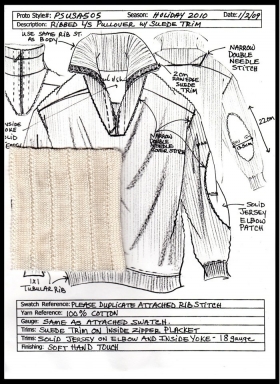 Proto Style#: PSUSAG05 Season: HOLIDAY 2010 Date: 1/2/09
Description: RIBBED L/S PULLOVER W/ SUEDE TRIM
USE SAME RIB ST.
AS BODY
NARROW
DOUBLE
NEEDLE
STITCH
2cm
RAW EDGE
SUEDE
TRIM
INSIDE
YOKE
SOLID
NARROW
DOUBLE
NEEDLE
COVER STITCH
22cm
SOLID
JERSEY
ELBOW
PATCH
1X1
TUBULAR RIB
Swatch Reference: PLEASE DUPLICATE ATTACHED RIB STITCH
Yarn Reference: 100% COTTON
Gauge: SAME AS ATTACHED SWATCH
Trims: SUEDE TRIM ON INSIDE ZIPPER PLACKET
Trims: SOLID JERSEY ON ELBOW AND INSIDE YOKE - 18 gauge
Finishing: SOFT HAND TOUCH